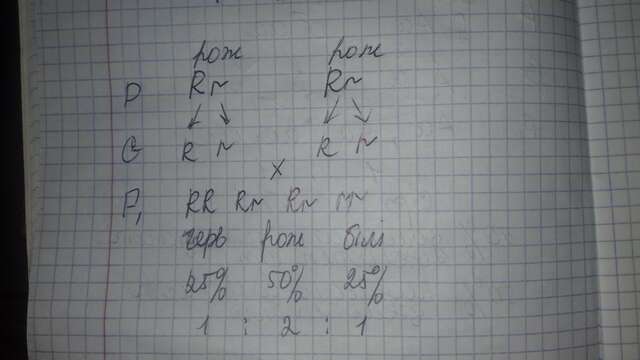 рож рож
P Rr Rr
G R r R r
x
F₁ RR Rr Rr rr
черв рож білі
25% 50% 25%
1 : 2 : 1